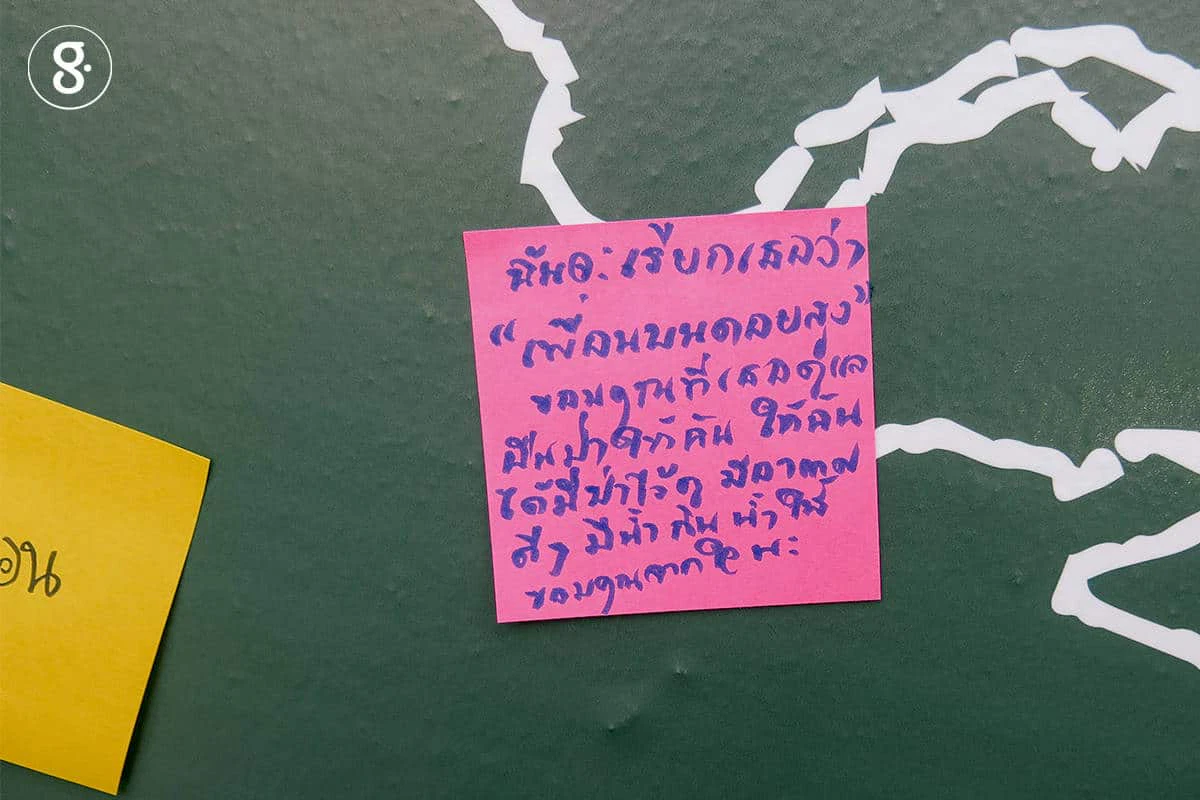 g.
ฉันจะเรียกเธอว่า
“เพื่อนบนดอยสูง”
ขอบคุณที่เธอดูแล
ผืนป่าให้ฉัน ให้ฉัน
ได้มีป่าไว้ๆ มีอากาศ
ดีๆ มีน้ำกิน น้ำใช้
ขอบคุณจากใจนะ
อน